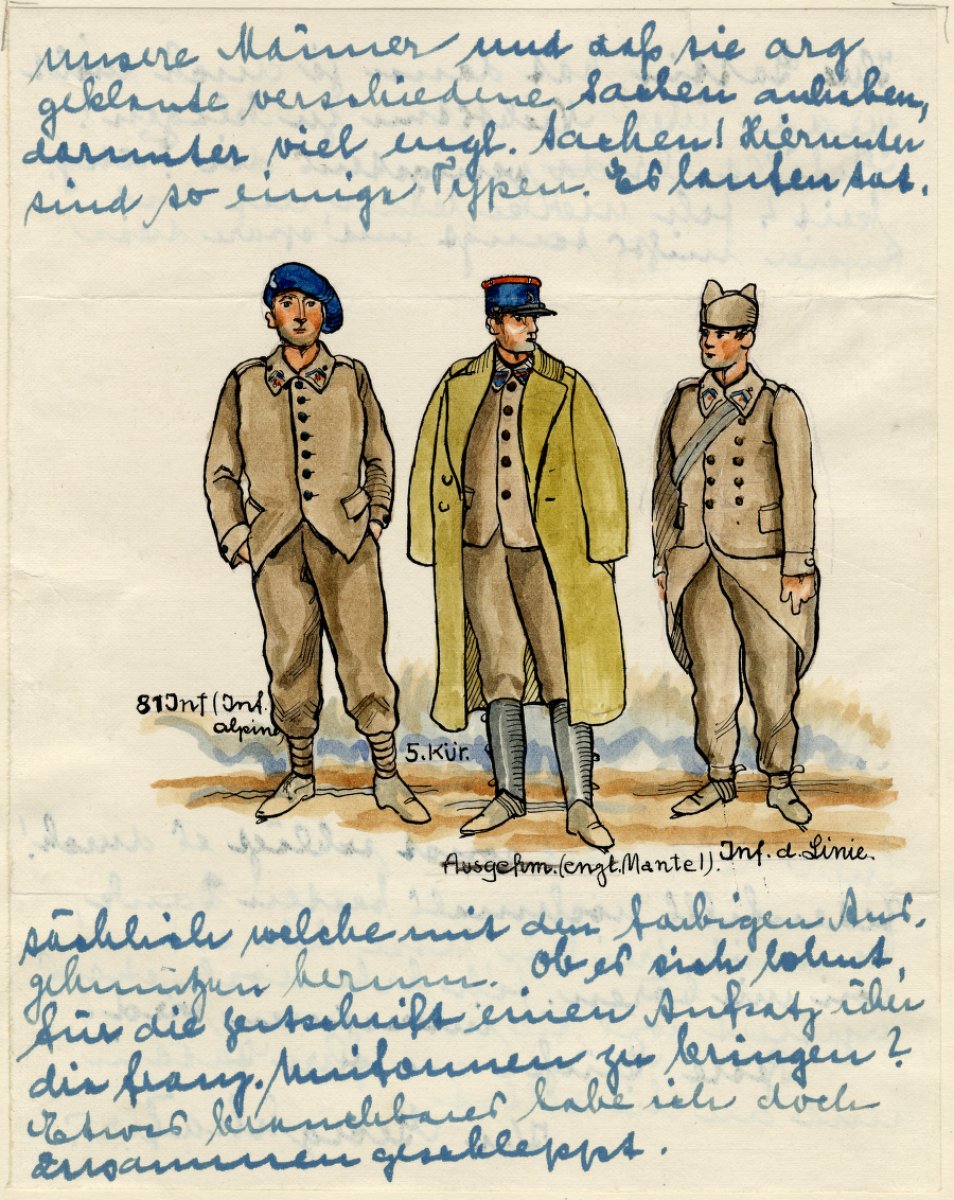 unsere Männer und daß sie arg
geklaute verschiedene Sachen anhaben,
darunter viel engl. Sachen! Hierunter
sind so einige Typen. Es laufen tat.
81 Inf (Inf.
alpine)
5. Kür.
Ausgehm. (engl. Mantel).
Inf. d. Linie.
sächlich welche mit den farbigen Aus.
gehmützen herum. Ob es sich lohnt,
für die Zeitschrift einen Aufsatz über
die franz. Uniformen zu bringen?
Etwas brauchbares habe ich doch
zusammengeschleppt.